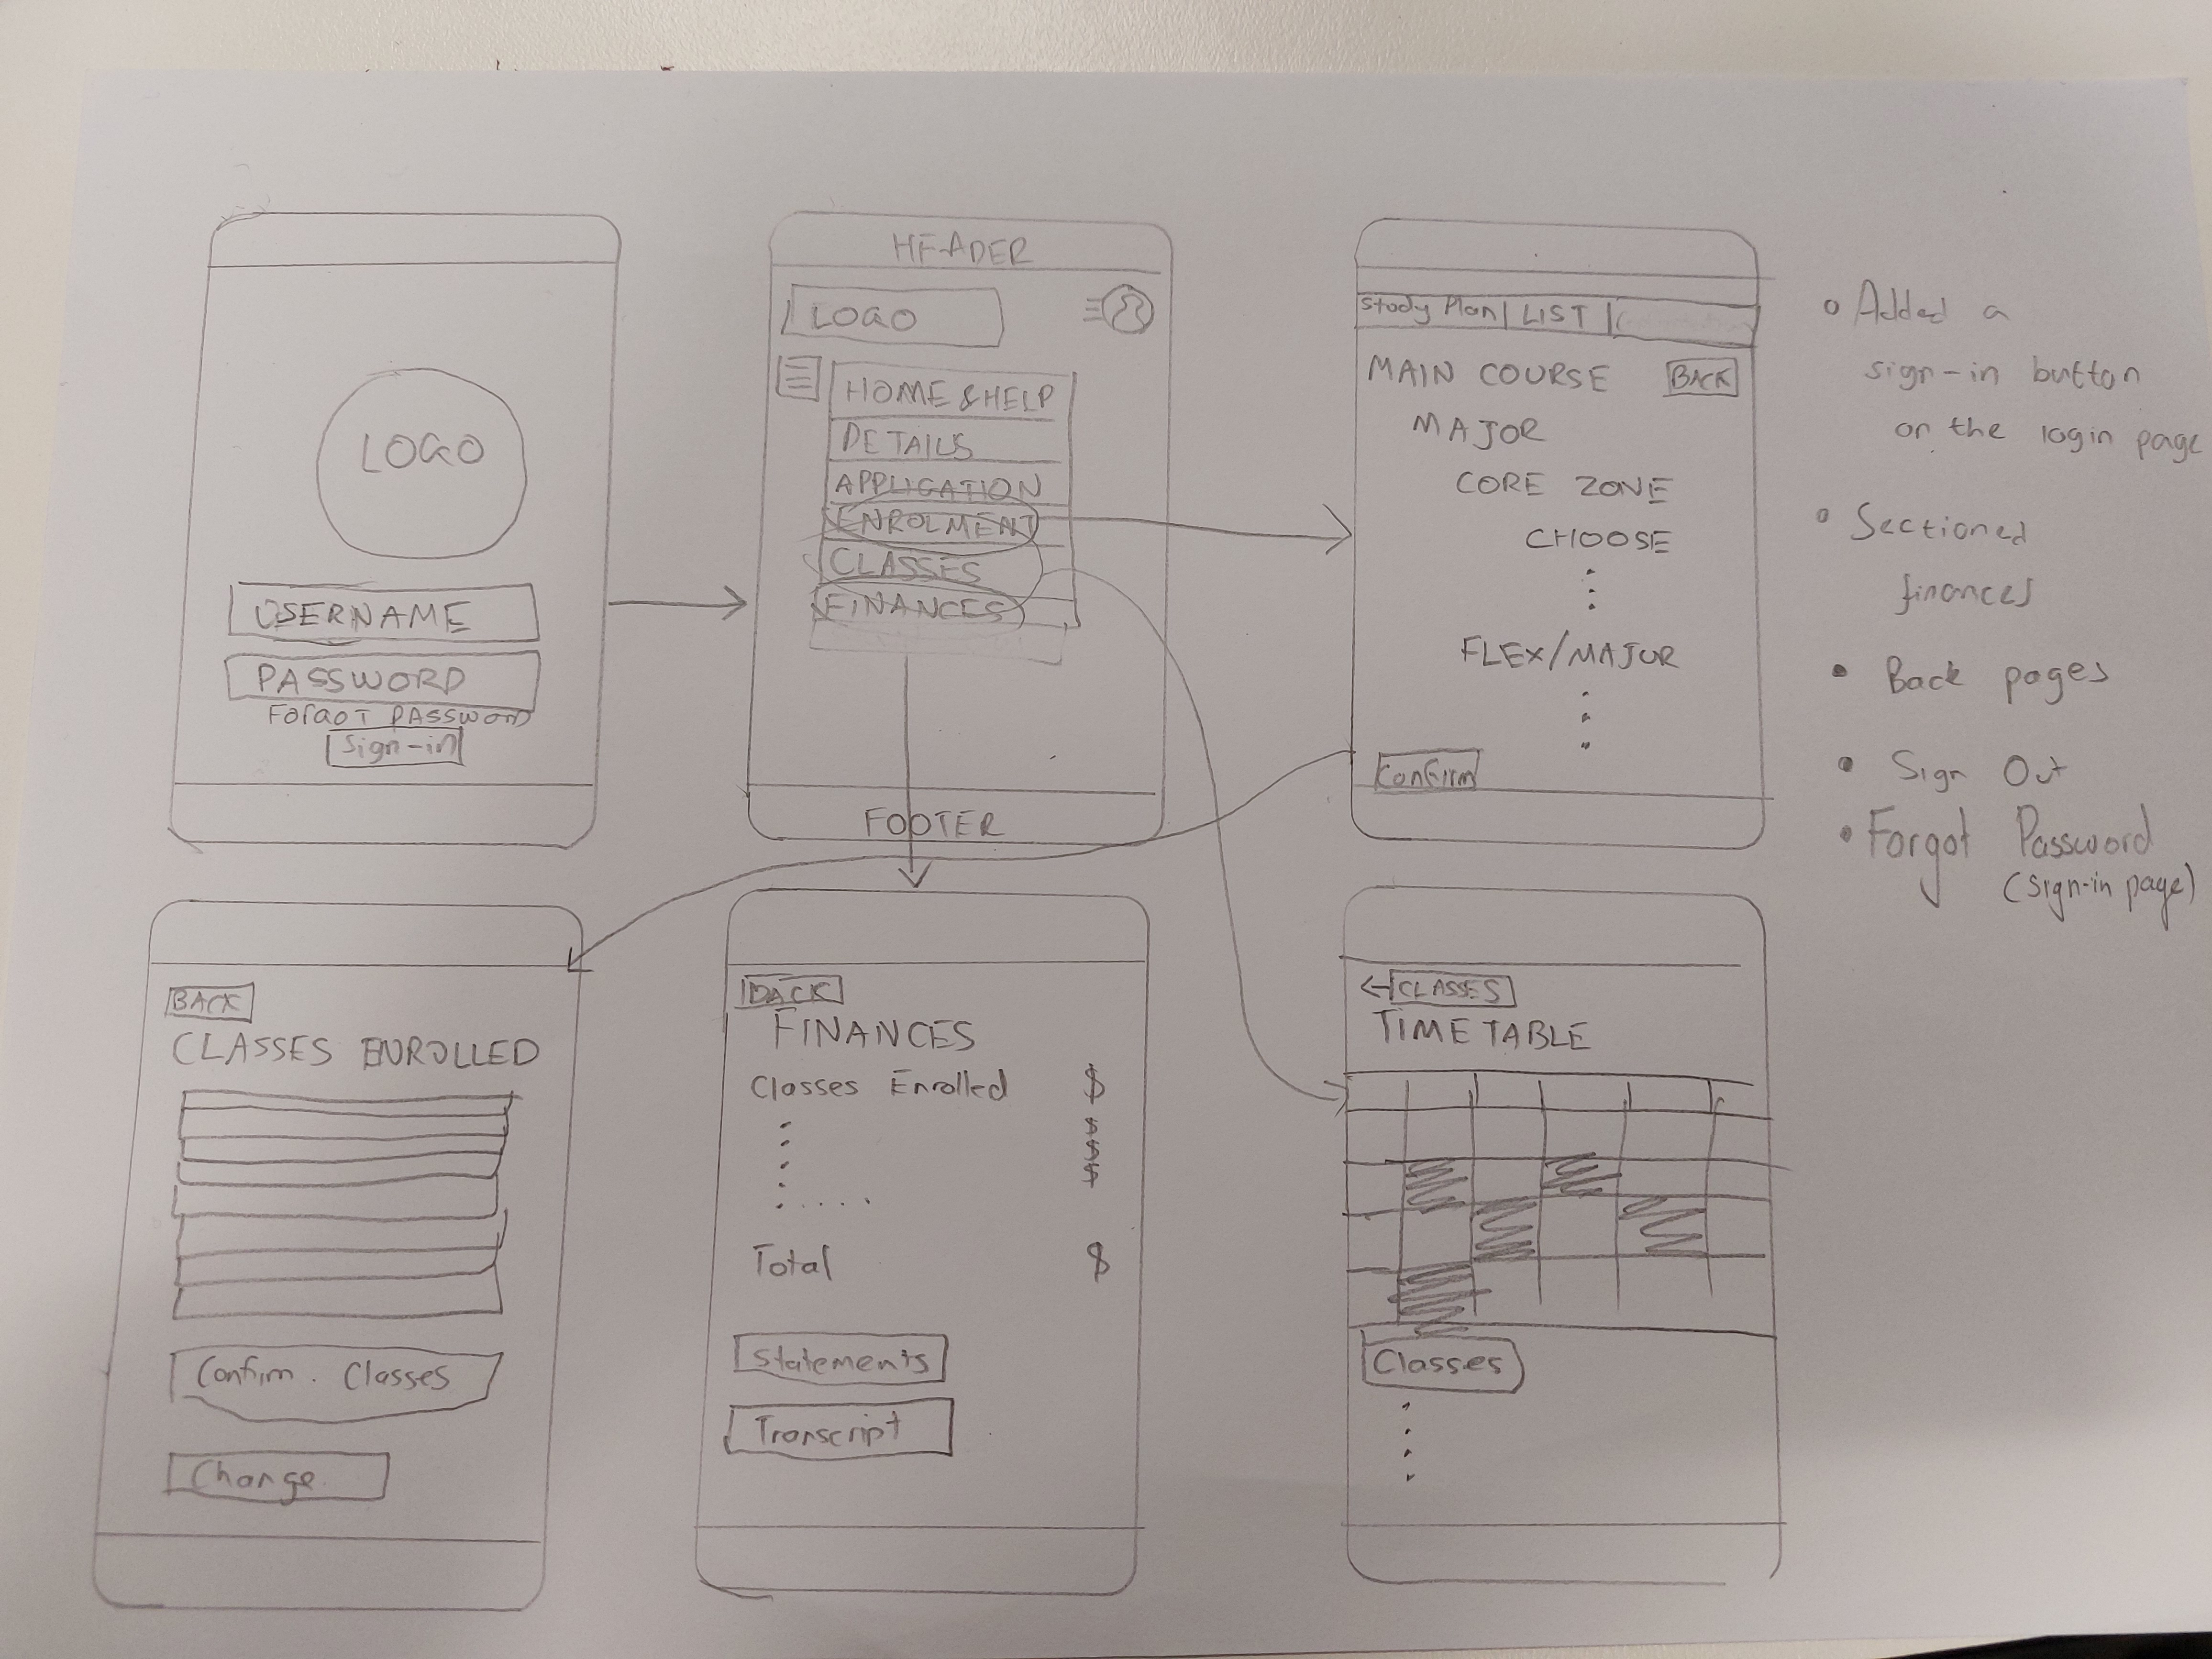 LOGO
USERNAME
PASSWORD
FORGOT PASSWORD
Sign-in
HEADER
LOGO
HOME & HELP
DETAILS
APPLICATION
ENROLMENT
CLASSES
FINANCES
FOOTER
Study Plan | LIST |
MAIN COURSE BACK
MAJOR
CORE ZONE
CHOOSE
FLEX/MAJOR
Confirm
• Added a
sign-in button
on the login page
• Sectioned
finances
• Back pages
• Sign Out
• Forgot Password
(sign-in page)
BACK
CLASSES ENROLLED
Confirm. Classes
Change.
BACK
FINANCES
Classes Enrolled $
$
$
$
Total $
Statements
Transcript
← CLASSES
TIMETABLE
Classes